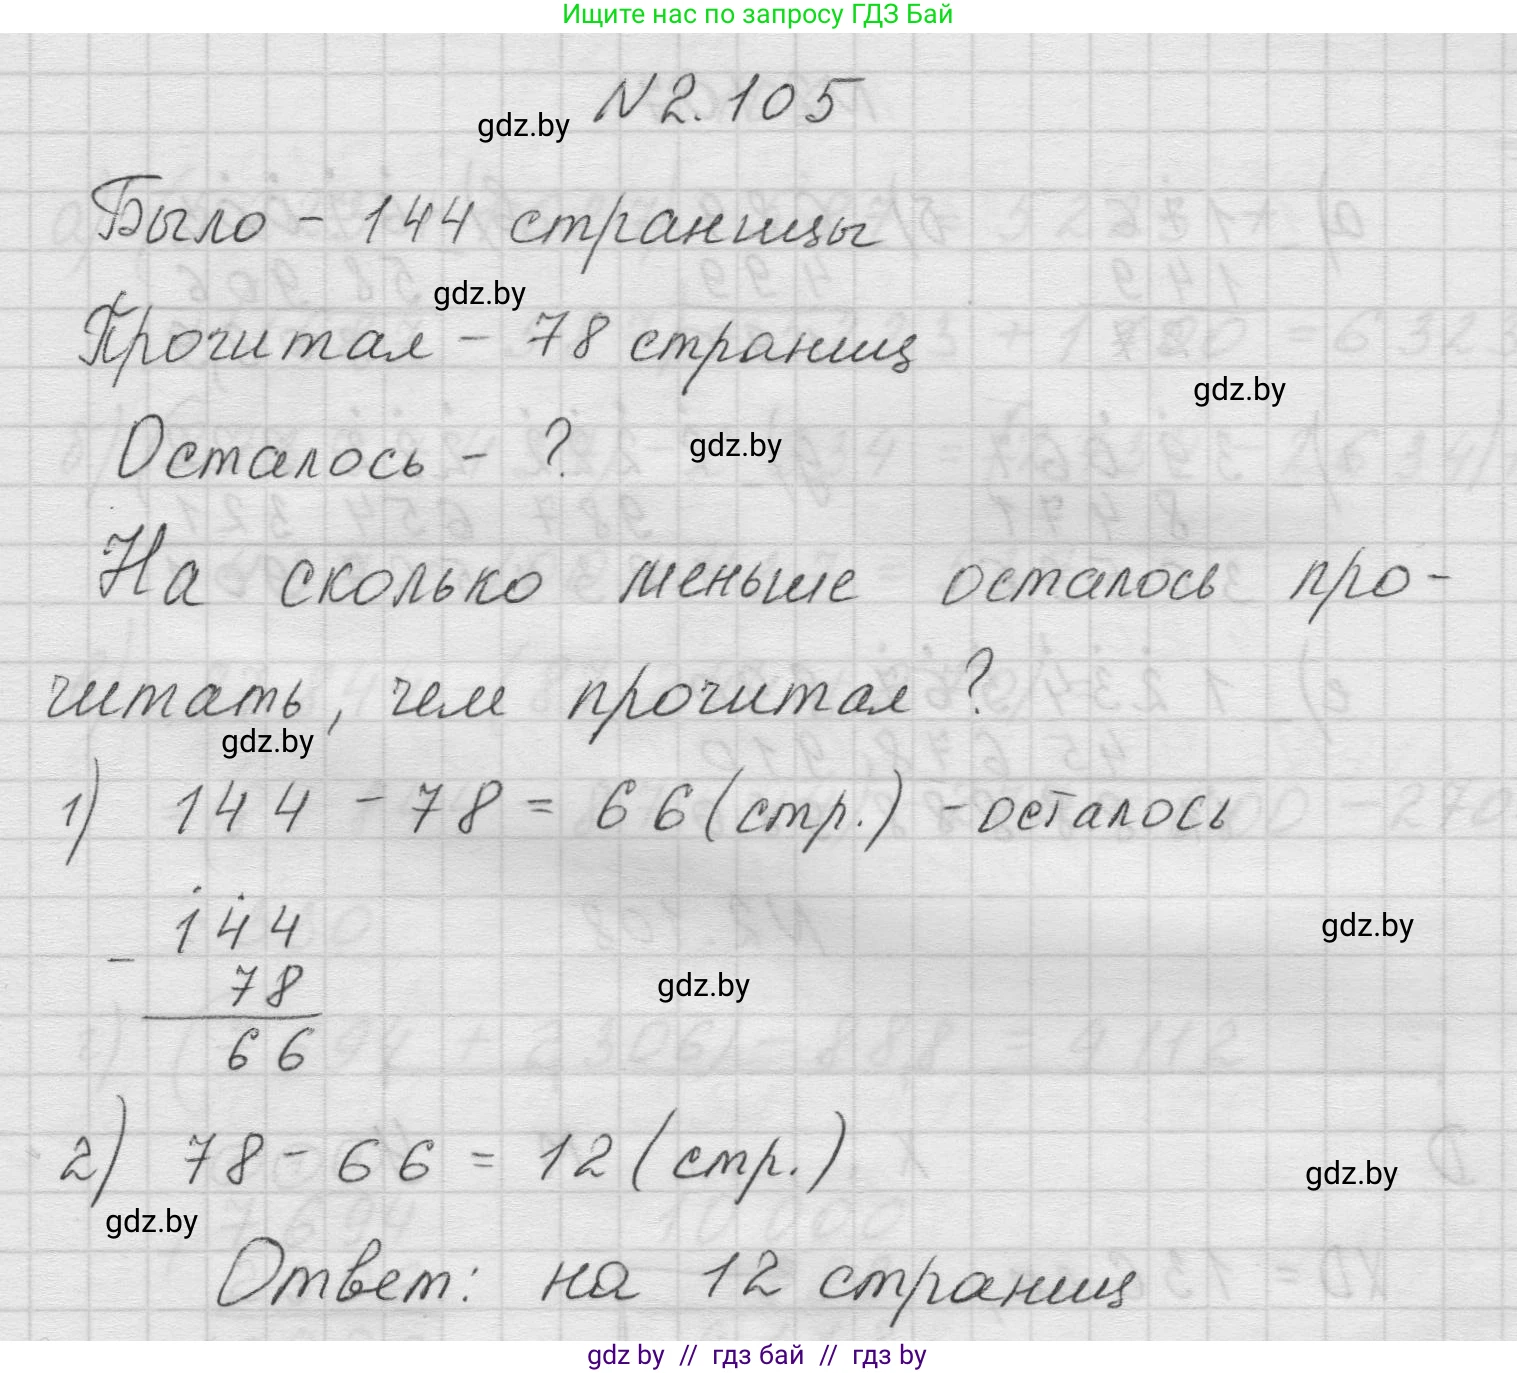 Ищите нас по запросу ГДЗ Бай
N 2.105
gdz.by
Было - 144 страницы
gdz.by
Прочитал - 78 страниц
gdz.by
Осталось - ?
gdz.by
На сколько меньше осталось про-
читать, чем прочитал?
gdz.by
1) 144 - 78 = 66 (стр.) - осталось
144
gdz.by
-
78
gdz.by
66
2) 78 - 66 = 12 (стр.)
gdz.by
gdz.by
Ответ: на 12 страниц
gdz by // гдз бай // гдз by